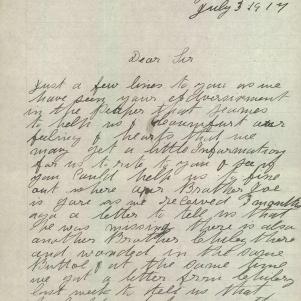 July 3 1917
Dear Sir
Just a few lines to you as we
have seen your advertisement
in the Paper that seames
to help us & comfort our
feelings & hearts that we
may get a little Information
for us to rite to you if
you could help us to fine
out where our Brother Joe
is gone as we received 3 months
ago a letter to tell us that
he was missing there is also
another Brother Charley there
and wounded in the same
Battol & at the same time
we got a letter from Charley
last week to tell us that